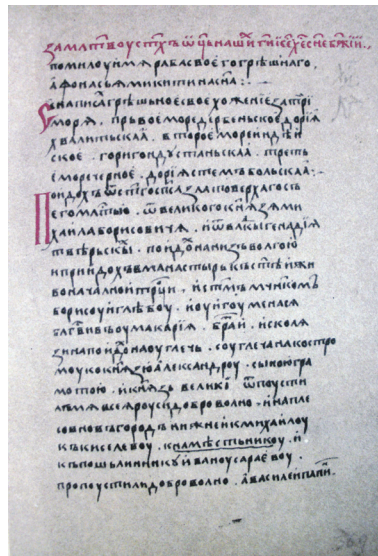 Замл҃твоуст҃хъѿц҃ьнашиⷯ.г҃иіс҃ех҃есн҃еб҃жїи..
помилоуимѧрабасвоегогрѣшнаго,
аⷴонасьѧмикитинасн҃а:
Ꙁнаписагрѣшьноесвоехоженїезатри
морѧ, пръвоемореде́рбеньскоедорїѧ
хвалитьскаа. второемореиндѣи
ское. горигондꙋстаньскаа. третье
еморечерное. дорїѧстемъбольскаа:
Поидохъѿсп҃сагос҃пасазлатоверхагосъ
егомл҃тью. ѿвеликогокнѧзѧми
хаилаборисовичѧ. иѿвл҃кыгенадїѧ
твѣрьскы. поидоⷯнанизъволгою
иприидохъвманастырькъст҃ѣижи
воначалноитр҃ци. ист҃ымъмч҃нкомъ
борисоуиглѣбоу. иоуигоуменасѧ
благⷭ҇вивъоумакарїѧ. браⷮи. исколѧ
зинапоидоⷯнаоуглечь. соуглечанакостро
моукокнѧзюалександроу. сыноюгра
мотою. икнѧзьвелико ѿпоусти
лъмѧвсеѧроусидоброволно. инапле
совновъгородънижнеикмихаилоу
къкиселевоу. кнамѣстьникоу. и
къпошьлинникꙋиваноусараевоу.
пропоустилидоброволно. авасилеипапи.